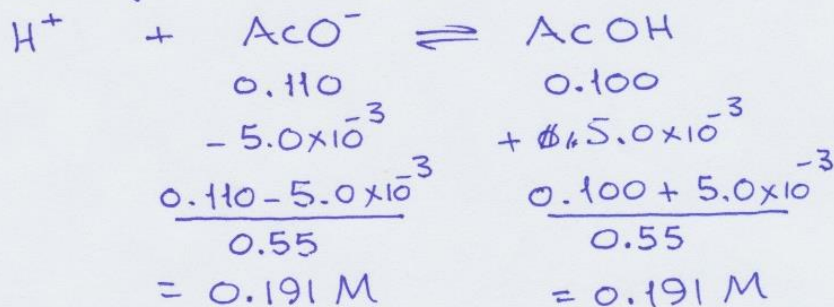 H⁺ + AcO⁻ ⇌ AcOH
0.110 0.100
- 5.0×10⁻³ + 5.0×10⁻³
0.110 - 5.0×10⁻³ 0.100 + 5.0×10⁻³
0.55 0.55
= 0.191 M = 0.191 M